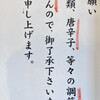 願い
類、唐辛子、等々の調
んので御了承下さいま
申し上げます。